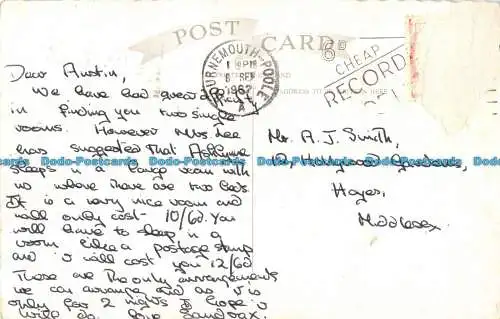 POST CARD
BOURNEMOUTH-POOLE
1 9 PM
8 SEP
1962
A
6D
CHEAP
RECORD
Dear Austin,
We have had great
in finding you two single
rooms. However Mrs Lee
has suggested that
sleeps in a large room with
us where there are two beds.
It is a very nice room and
will only cost 10/6d. You
will have to sleep in a
room like a postage stamp
and it will cost you 12/6d
These are the only arrangements
we can arrange and as it is
only for 2 nights I hope it
will do. love Sandra x.
Mr. A. J. Smith,
Gardens,
Hayes,
Middlesex.
Dodo-Postcards Dodo-Postcards Dodo-Postcards Dodo-Postcards Dodo-Postcards